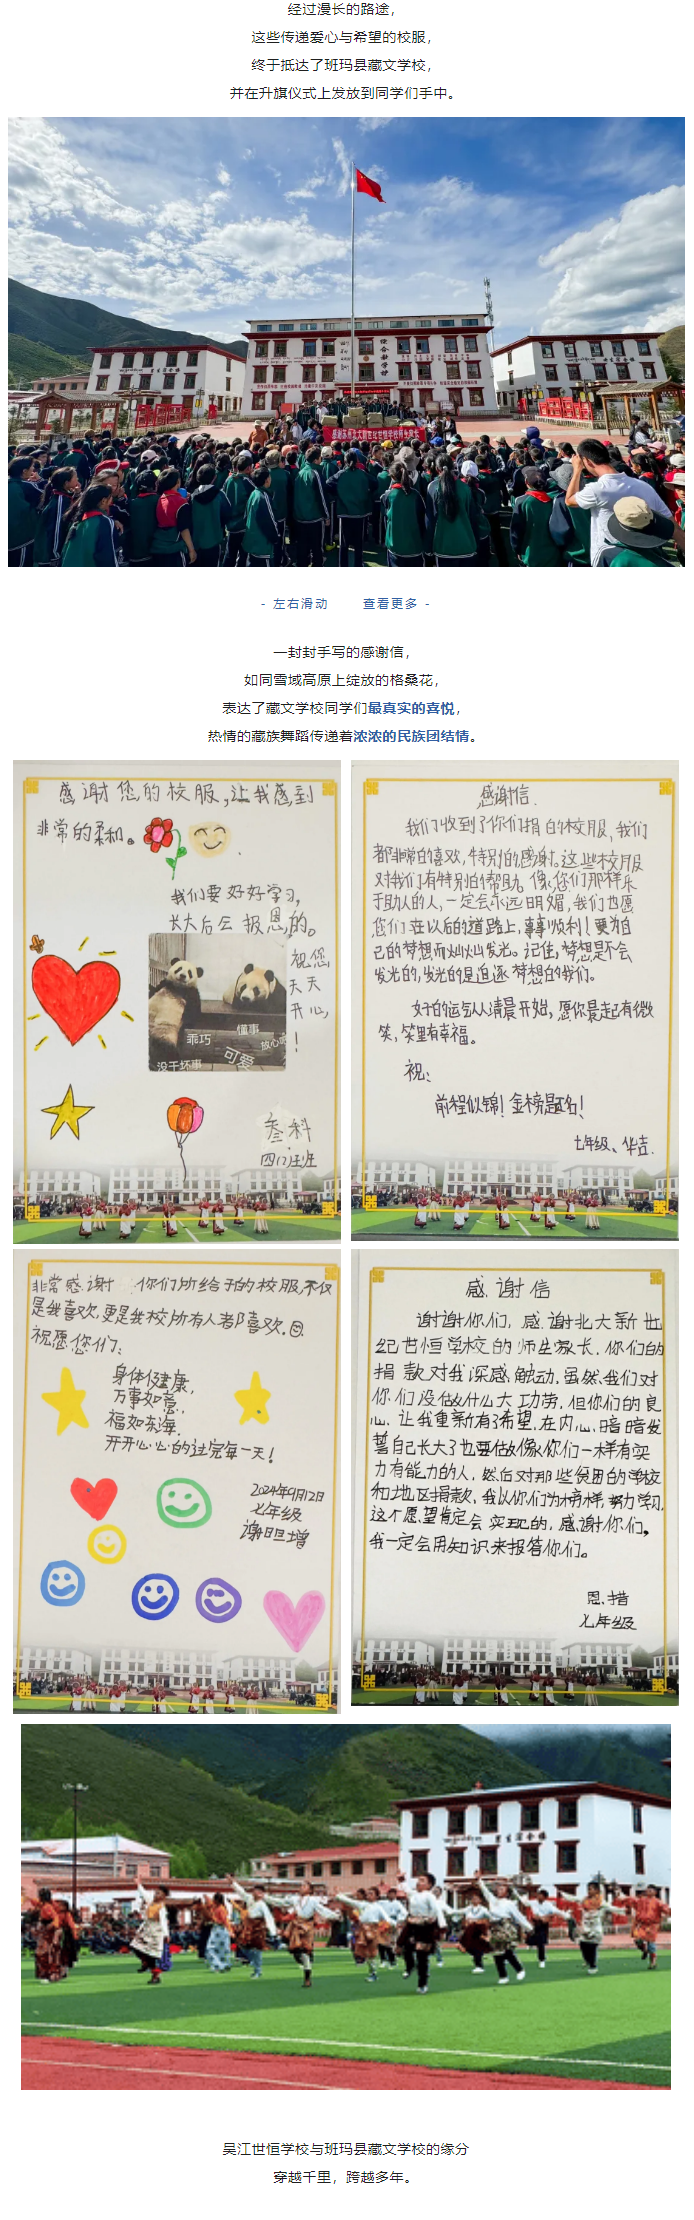 经过漫长的路途，
这些传递爱心与希望的校服，
终于抵达了班玛县藏文学校，
并在升旗仪式上发放到同学们手中。
综合教学楼
- 左右滑动 查看更多 -
一封封手写的感谢信，
如同雪域高原上绽放的格桑花，
表达了藏文学校同学们最真实的喜悦，
热情的藏族舞蹈传递着浓浓的民族团结情。
感谢您的校服,让我感到
非常的柔和。
我们要好好学习,
长大后会报恩的。
祝您
天天
开心,
!
乖巧
懂事
可爱
放心吧
没干坏事
叁科
四(2)班
感谢信.
我们收到了你们捐的校服,我们
都非常的喜欢,特别的感谢。这些校服
对我们有特别的帮助。像您们那样乐
于助人的人,一定会永远明媚,我们也愿
您们在以后的道路上,事事顺利!更为自
己的梦想而灿灿发光。记住,梦想是不会
发光的,发光的是追逐梦想的我们。
好的运气从清晨开始,愿你晨起有微
笑,笑里有幸福。
祝:
前程似锦!金榜题名!
七年级、华吉.
非常感谢 你们所给予的校服,不仅
是我喜欢,更是我校所有人都喜欢。
祝愿您们:
身体健康,
万事如意,
福如东海,
开开心心的过完每一天!
2024年9月12日
七年级
谢旦增
感谢信
谢谢你们,感谢北大新世
纪世恒学校的师生家长,你们的
捐款对我深感触动,虽然我们对
你们没做什么大功劳,但你们的良
心,让我重新有了希望,在内心,暗暗发
誓自己长大了也要做像你们一样有实
力有能力的人,然后对那些贫困的学校
和地区捐款,我以你们为榜样,努力学习,
这个愿望肯定会实现的,感谢你们,
我一定会用知识来报答你们。
恩措
七年级
吴江世恒学校与班玛县藏文学校的缘分
穿越千里，跨越多年。